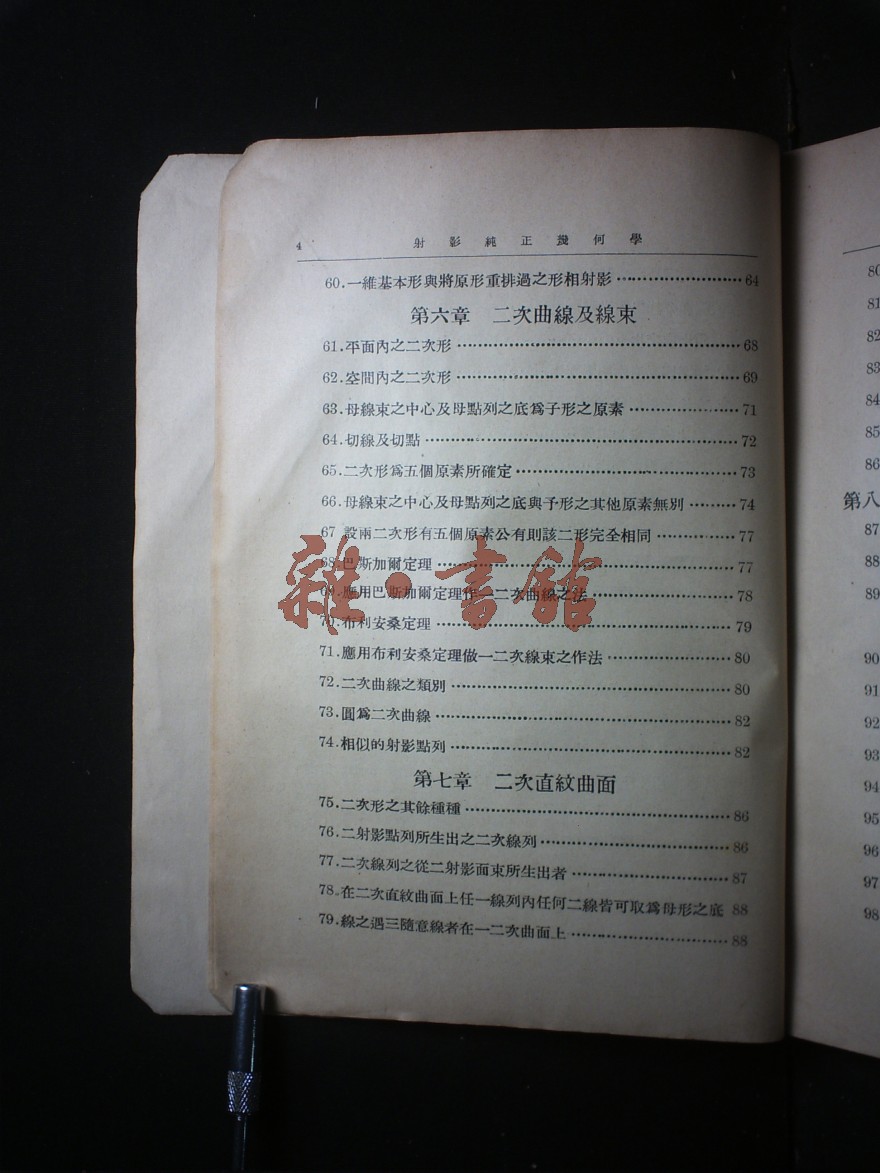 4 射影純正幾何學
60.一維基本形與將原形重排過之形相射影……………………64
第六章 二次曲線及線束
61.平面內之二次形……………………68
62.空間內之二次形……………………69
63.母線束之中心及母點列之底爲子形之原素……………………71
64.切線及切點……………………72
65.二次形爲五個原素所確定……………………73
66.母線束之中心及母點列之底與子形之其他原素無別………74
67 設兩二次形有五個原素公有則該二形完全相同…………77
68.巴斯加爾定理……………………77
69.應用巴斯加爾定理作一二次曲線之法……………………78
70.布利安桑定理……………………79
71.應用布利安桑定理做一二次線束之作法……………………80
72.二次曲線之類別……………………80
73.圓爲二次曲線……………………82
74.相似的射影點列……………………82
第七章 二次直紋曲面
75.二次形之其餘種種……………………86
76.二射影點列所生出之二次線列……………………86
77.二次線列之從二射影面束所生出者……………………87
78.在二次直紋曲面上任一線列內任何二線皆可取爲母形之底 88
79.線之遇三隨意線者在一二次曲面上……………………88
雜·書館
80
81
82
83
84
85
86
第八
87
88
89
90
91
92
93
94
95
96
97
98